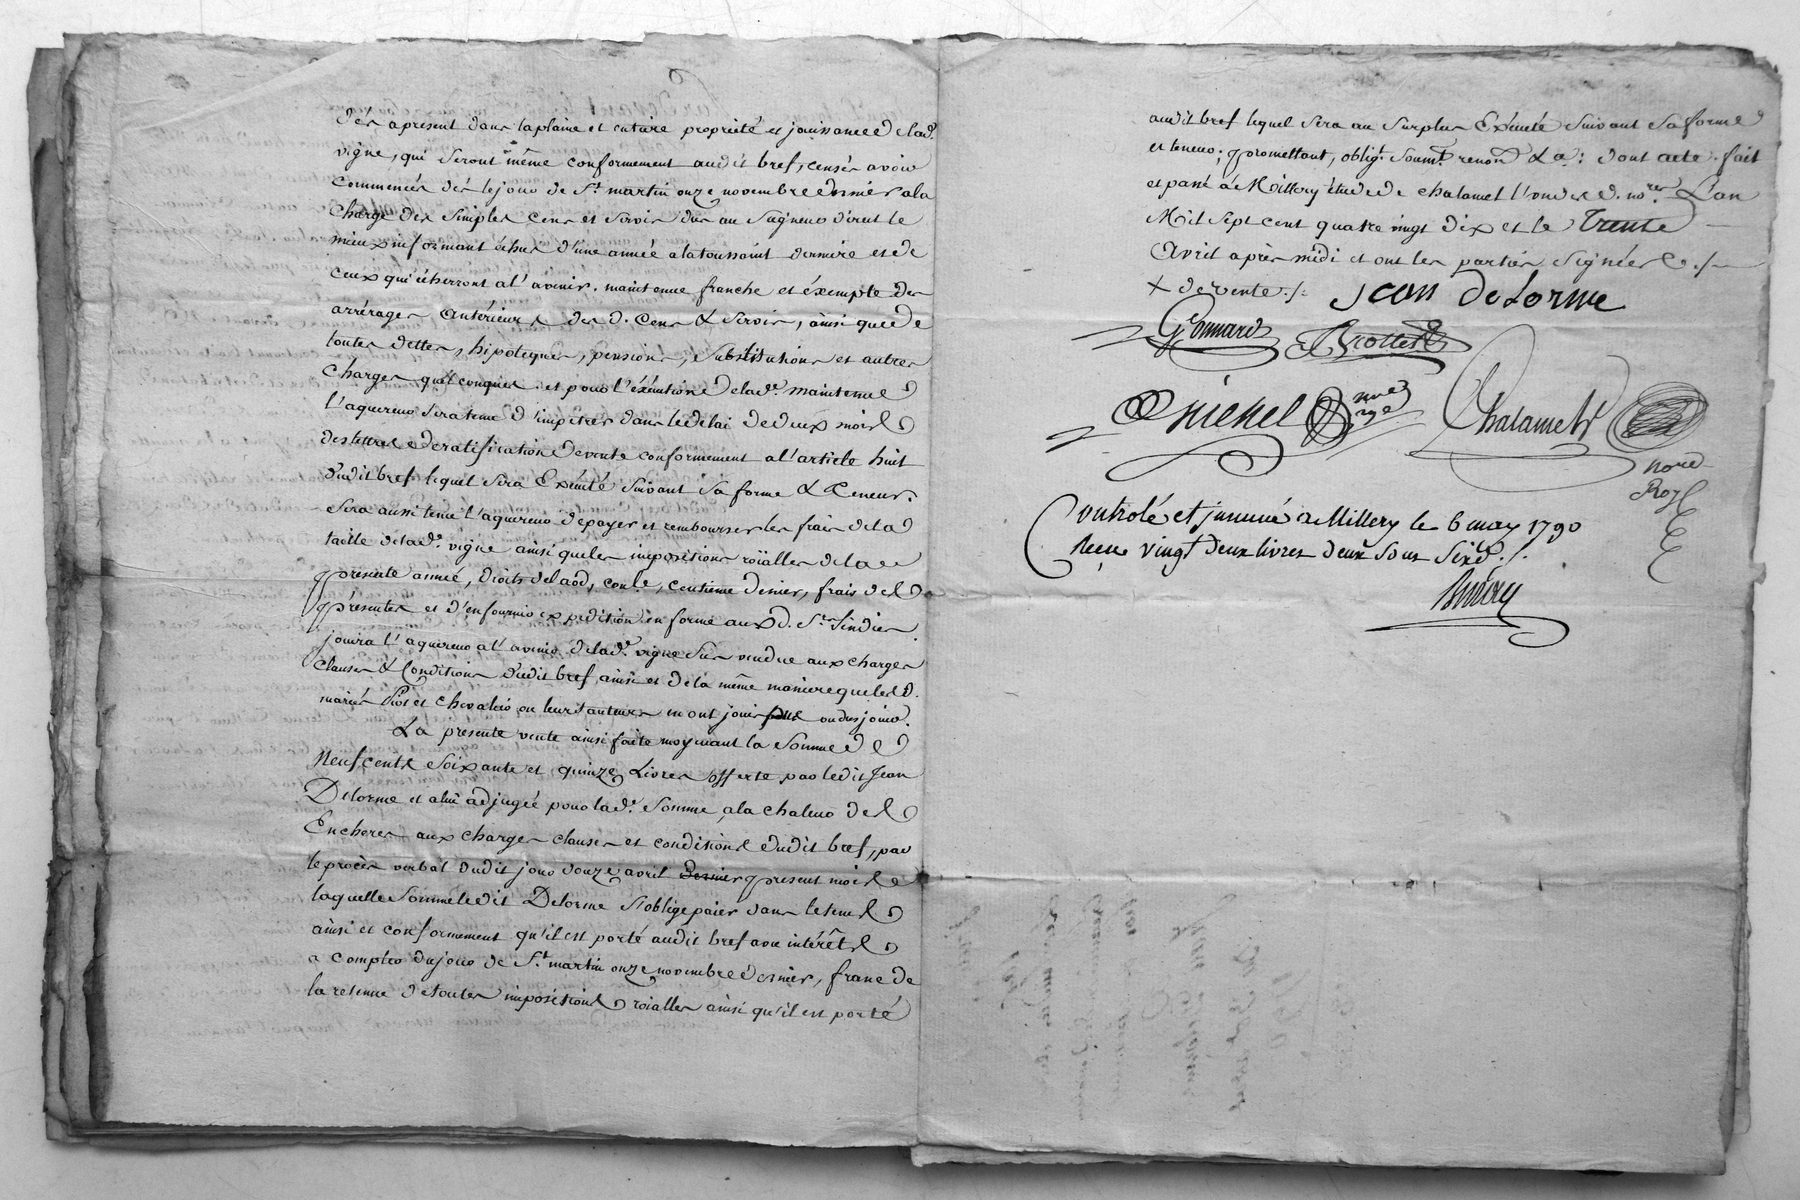 dés apresent dans la plaine et entiere propriété et jouissance de lad.e
vigne, qui seront même conformement audit bref, censés avoir
commencés dés le jour de St. martin onze novembre dernier a la
charge des simples cens et servis dus au Seigneur direct le
mieux informant échus d'une année a la toussaint derniere et de
ceux qui écherront a l'avenir. maintenue franche et éxempte des
arrérages antérieurs des d. cens & servis, ainsi que de
toutes dettes, hipoteques, pensions, substitutions et autres
charges quelconques. et pour l'éxécution de lad.e maintenue
l'aquereur sera tenu d'impétrer dans le delai de deux mois
des lettres de ratification de vente conformement a l'article huit
dudit bref lequel sera Exécuté suivant sa forme & teneur.
sera aussi tenu l'aquereur de payer et rembourser les frais de la
taille de lad.e vigne ainsi que les impositions roïalles de la
presente année, droits de laod, con.le, centieme denier, frais des
présentes et d'en fournir expedition en forme aux d. Srs. Sindics.
jouira l'aquereur a l'avenir de lad.e vigne sus vendue aux charges
clauses & Conditions dudit bref, ainsi et de la même maniere que les d.
mariés Piot et chevalier ou leurs auteurs en ont joui ou du jouir.
La presente vente ainsi faite moyenant la Somme de
Neuf cents soixante et quinze Livres offerte par ledit Jean
Delorme et a lui adjugée pour lad.e somme, a la chaleur des
Encheres aux charges clauses et conditions dudit bref, par
le procès verbal dudit jour douze avril dernier present mois
laquelle somme ledit Delorme s'oblige paier dans le tems
ainsi et conformement qu'il est porté audit bref avec intérêts
a compter du jour de St. martin onze novembre dernier, franc de
la retenue de toutes impositions roialles ainsi qu'il est porté
audit bref lequel sera au surplus Exécuté suivant sa forme
et teneur; promettant, oblig.t soum.t renon.t &a: dont acte. fait
et passé a Millery étude de chalamel l'un des d. no.res L'an
Mil sept cent quatre vingt dix et le trente
Avril après midi et ont les parties signées./.
+ de vente ./.
Jean Delorme
Gonnard
Trottet
Michel
Chalamel
Controlé et insinué a Millery le 6 may 1790
Reçu vingt deux livres deux sous six d. /.